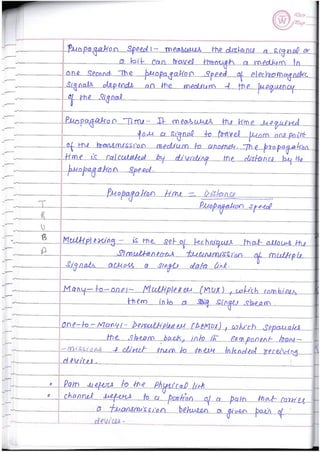 Propagation Speed :- measures the distance a signal or
a bit can travel through a medium in
one second The propagation speed of electromagnetic
Signals depends on the medium & the frequency
of the Signal.
Propagation Time - It measures the time required
for a signal to travel from one point
of the transmission medium to another. The propagation
time is calculated by dividing the distance by the
propagation speed.
Propagation time = Distance
Propagation speed
Multiplexing - is the set of techniques that allows the
Simultaneous transmission of multiple
Signals across a single data link.
Many-to-one :- Multiplexer (MUX), which combines
them into a single stream.
one-to-Many :- Demultiplexer (DEMUX), which separates
the stream back, into its component trans-
-missions & direct them to there intended receiving
devices.
• Path refers to the physical link
• channel refers to a portion of a path that carries
a transmission between a given pair of
devices.
T
R
U
B
A